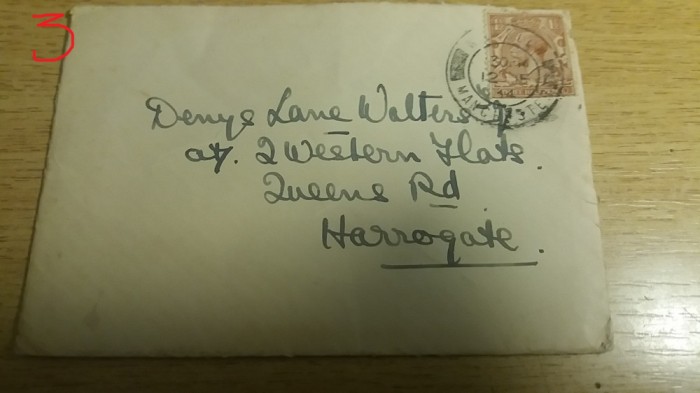 3
Denys Lane Walters
at. 2 Western Flats.
Queens Rd.
Harrogate.
MANCHESTE